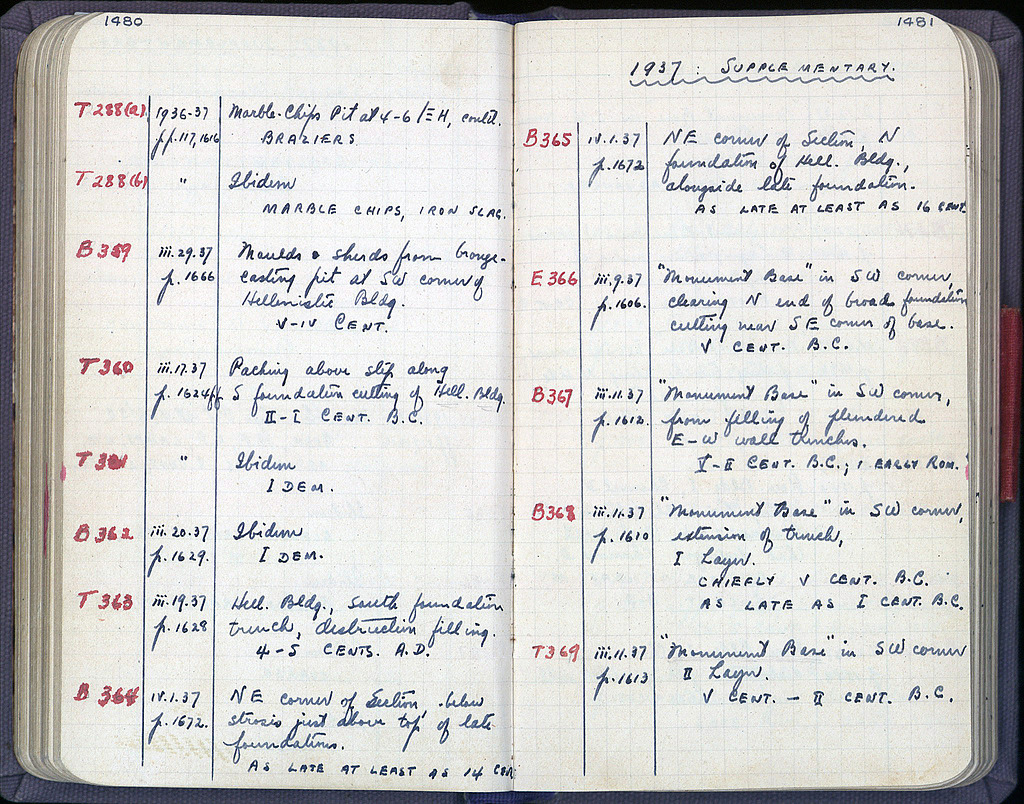 1480
T 288(a) 1936-37 Marble-Chips Pit at 4-6/ΞH, contd.
pp. 117, 1616 BRAZIERS
T 288(b) " Ibidem
MARBLE CHIPS, IRON SLAG.
B 359 iii.29.37 Moulds & sherds from bronze-
p. 1666 casting pit at SW corner of
Hellenistic Bldg.
V-IV CENT.
T 360 iii.17.37 Packing above slip along
p. 1624ff S foundation cutting of Hell. Bldg.
II-I CENT. B.C.
T 361 " Ibidem
IDEM.
B 362 iii.20.37 Ibidem
p. 1629. IDEM.
T 363 iii.19.37 Hell. Bldg., South foundation
p. 1628 trench, destruction filling.
4-5 CENTS. A.D.
B 364 iv.1.37 NE corner of Section, below
p. 1672. strosis just above top of late
foundations.
AS LATE AT LEAST AS 14 CEN
1481
1937 : SUPPLEMENTARY.
B365 iv.1.37 NE corner of Section, N
p. 1672 foundation of Hell. Bldg.,
alongside late foundation.
AS LATE AT LEAST AS 16 CENT.
E 366 iii.9.37 "Monument Base" in SW corner,
p. 1606. clearing N end of broad foundation
cutting near SE corner of base.
V CENT. B.C.
B367 iii.11.37 "Monument Base" in SW corner,
p. 1612. from filling of plundered
E-W wall trenches.
V-II CENT. B.C.; 1 EARLY ROM.
B368 iii.11.37 "Monument Base" in SW corner,
p. 1610 extension of trench,
I Layer.
CHIEFLY V CENT. B.C.
AS LATE AS I CENT. B.C.
T369 iii.11.37 "Monument Base" in SW corner
p. 1613 II Layer.
V CENT. - II CENT. B.C.